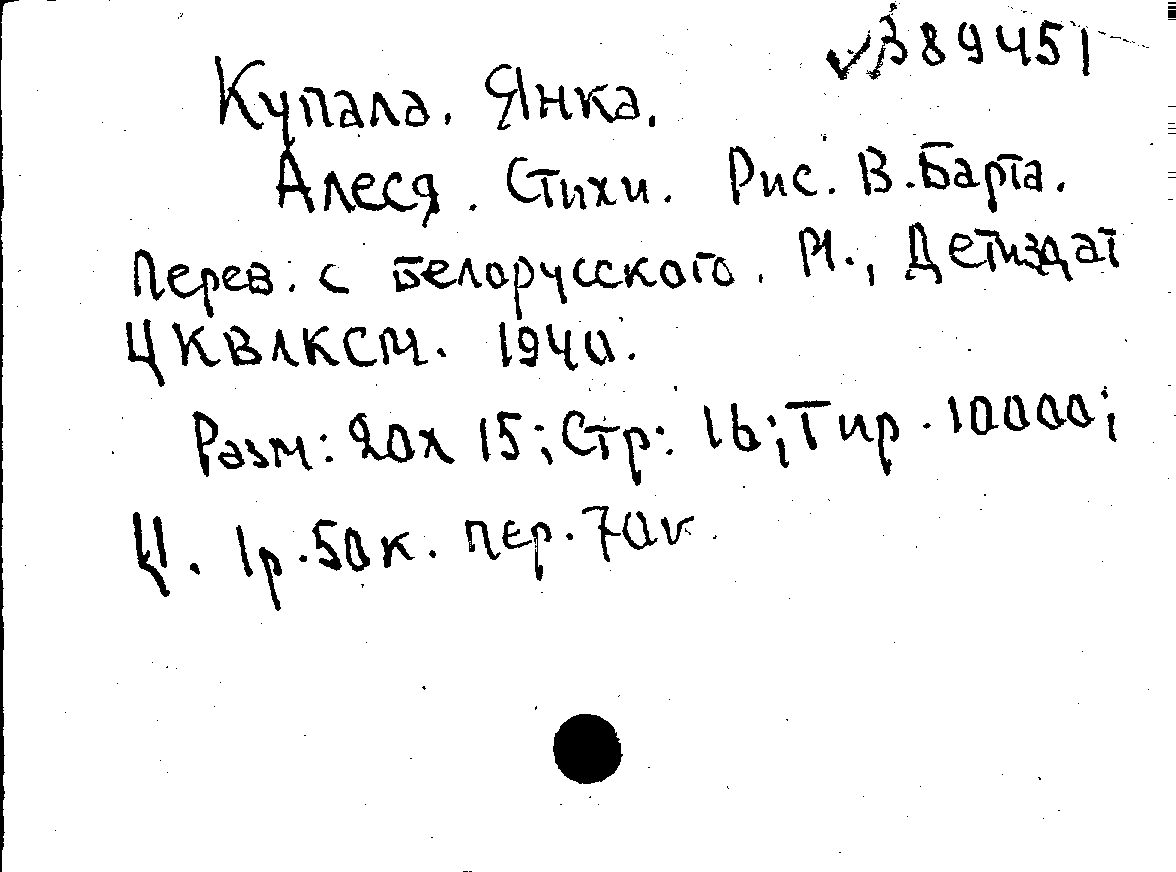 ✓389451
Купала. Янка.
Алеся. Стихи. Рис. В. Барта.
Перев. с Белорусского. М., Детиздат
ЦКВЛКСМ. 1940.
Разм: 20х15; Стр: 16; Тир. 10000;
Ц. 1р. 50к. пер. 70к.